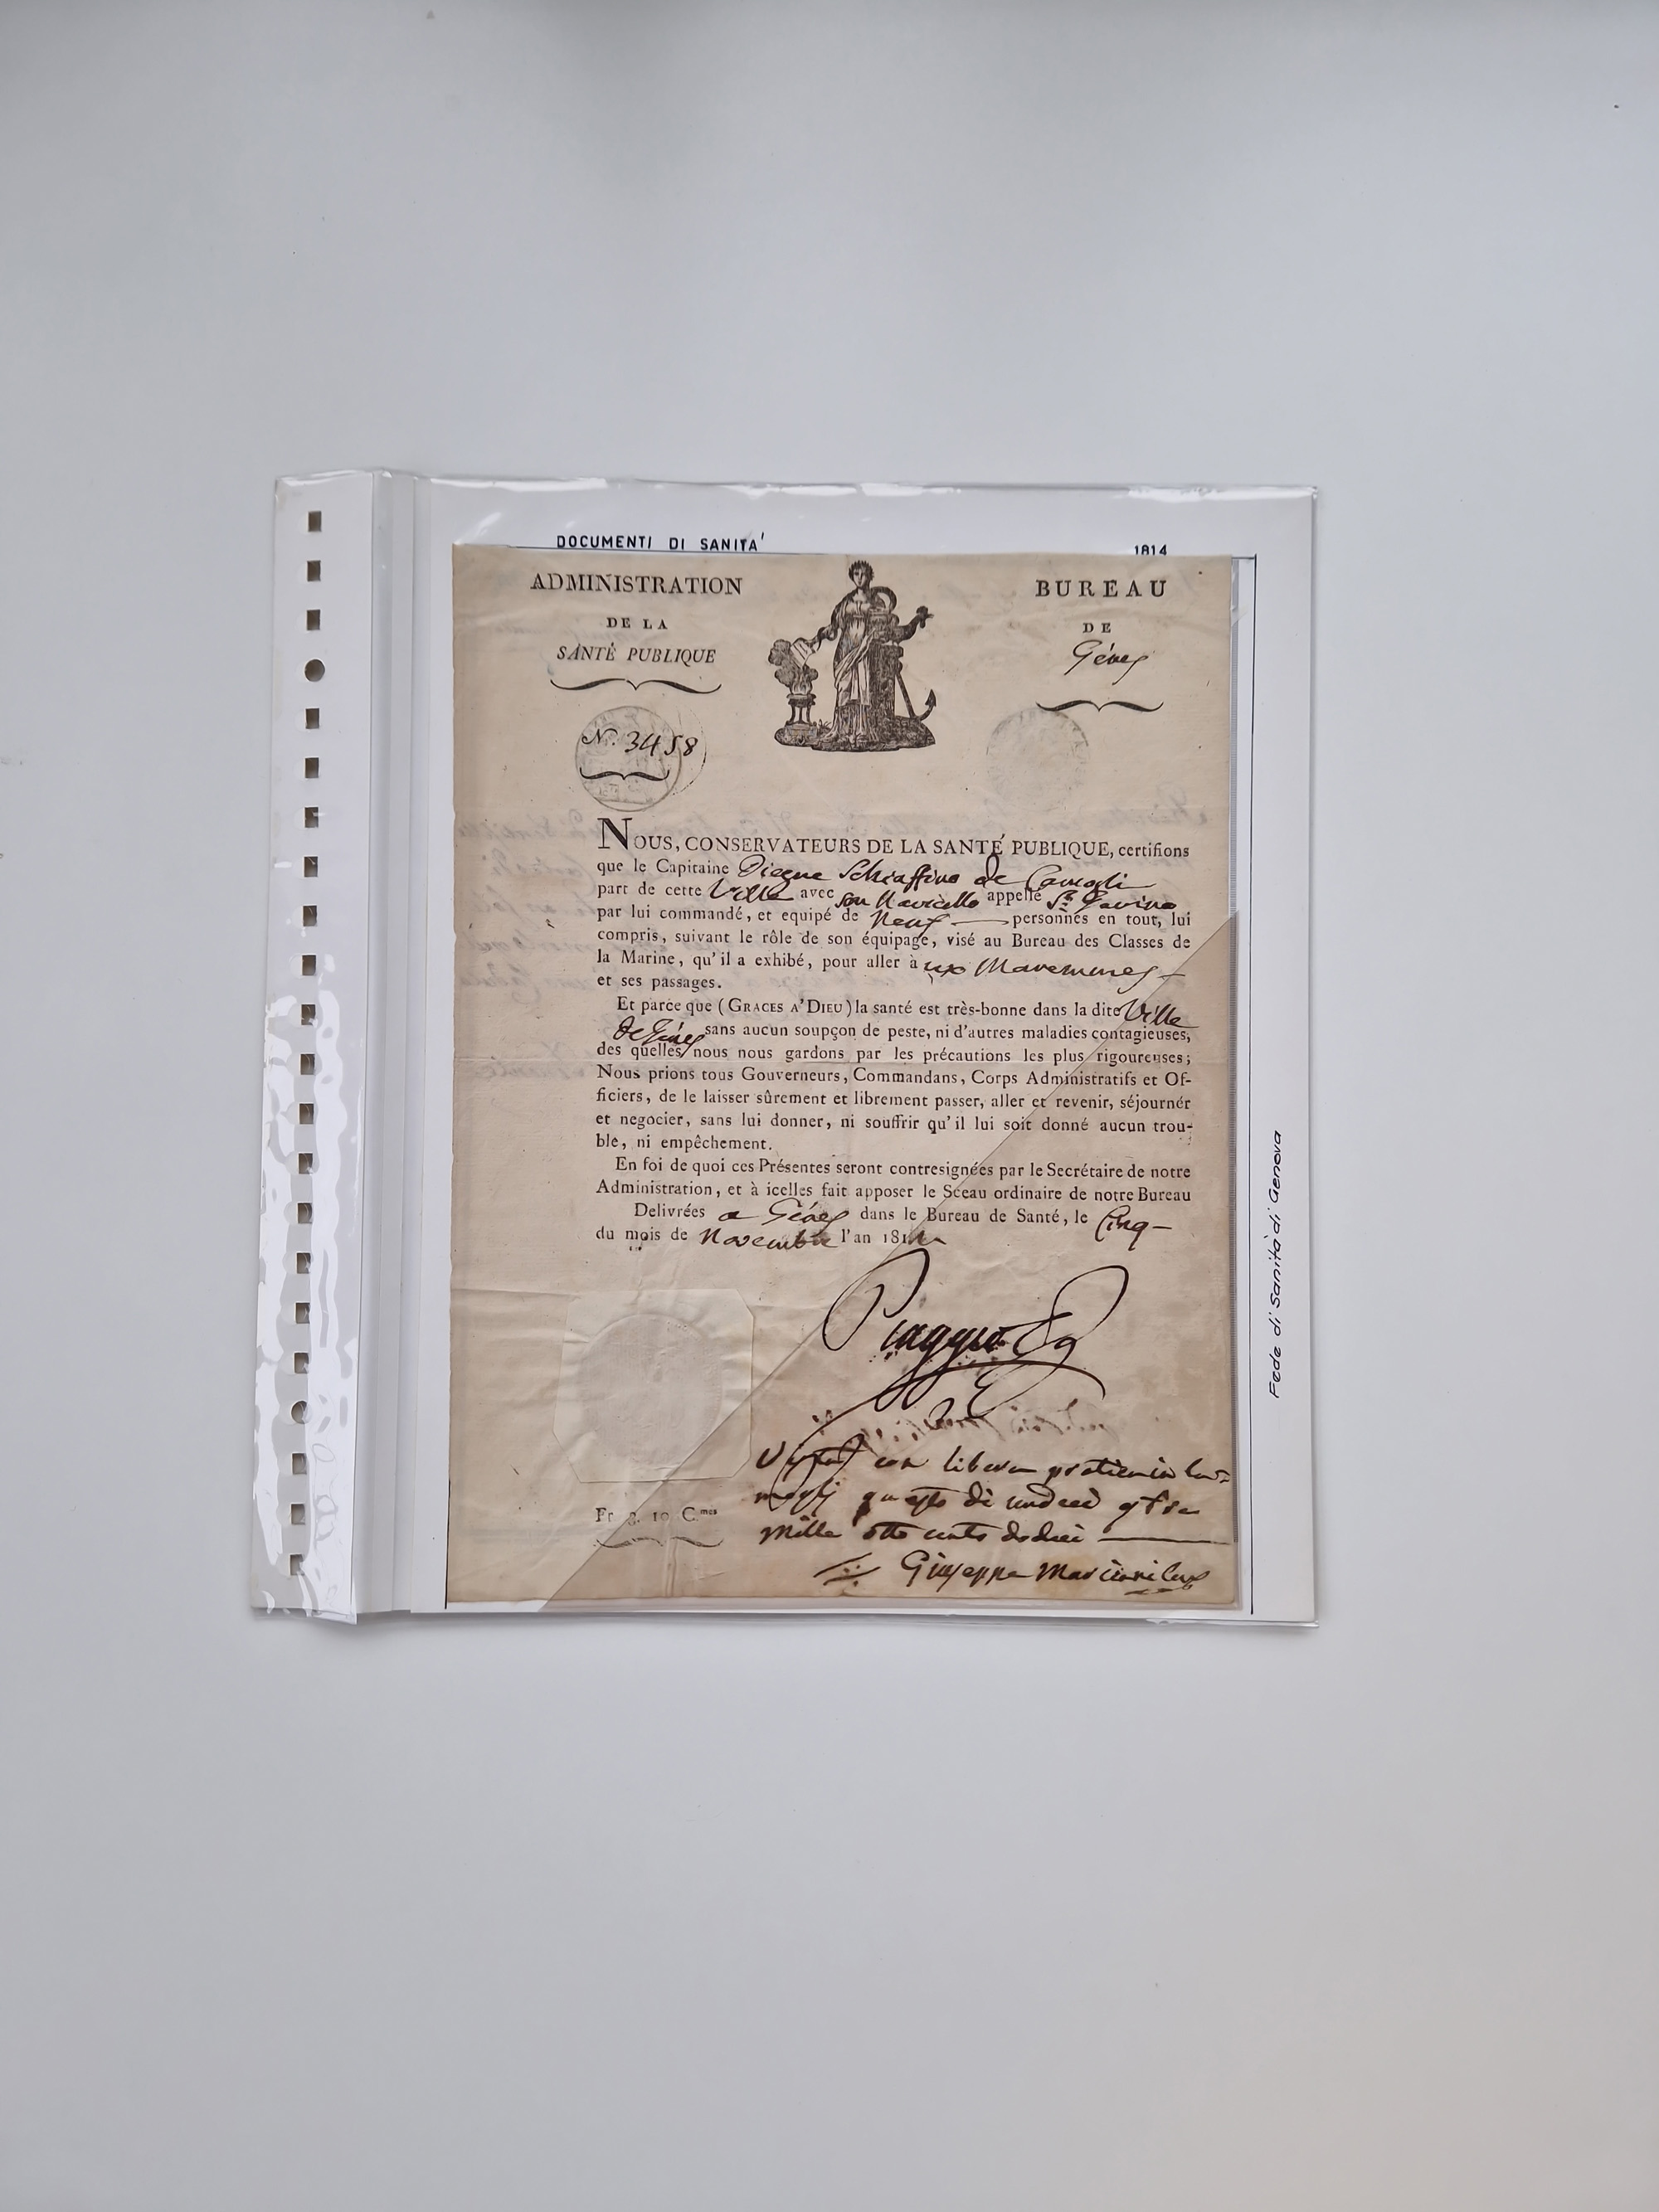 DOCUMENTI DI SANITA' 1814
ADMINISTRATION
DE LA
SANTÉ PUBLIQUE
BUREAU
DE
Gênes
N. 3458
NOUS, CONSERVATEURS DE LA SANTÉ PUBLIQUE, certifions
que le Capitaine Schiaffino de Camogli
part de cette Ville avec son Navicello appellé
par lui commandé, et equipé de Neuf personnes en tout, lui
compris, suivant le rôle de son équipage, visé au Bureau des Classes de
la Marine, qu'il a exhibé, pour aller à ux Maremmes
et ses passages.
Et parce que (GRACES A'DIEU) la santé est très-bonne dans la dite Ville
de Gênes sans aucun soupçon de peste, ni d'autres maladies contagieuses,
des quelles nous nous gardons par les précautions les plus rigoureuses;
Nous prions tous Gouverneurs, Commandans, Corps Administratifs et Of-
ficiers, de le laisser sûrement et librement passer, aller et revenir, séjournér
et negocier, sans lui donner, ni souffrir qu'il lui soit donné aucun trou-
ble, ni empêchement.
En foi de quoi ces Présentes seront contresignées par le Secrétaire de notre
Administration, et à icelles fait apposer le Sceau ordinaire de notre Bureau
Delivrées a Gênes dans le Bureau de Santé, le Cinq
du mois de Novembre l'an 181
Piaggio
con libera pratica in Ca-
mogli questo di undeci
Mille otto cento dodici
Giuseppe
Fr. 3. 10 C.mes
Fede di Sanità di Genova